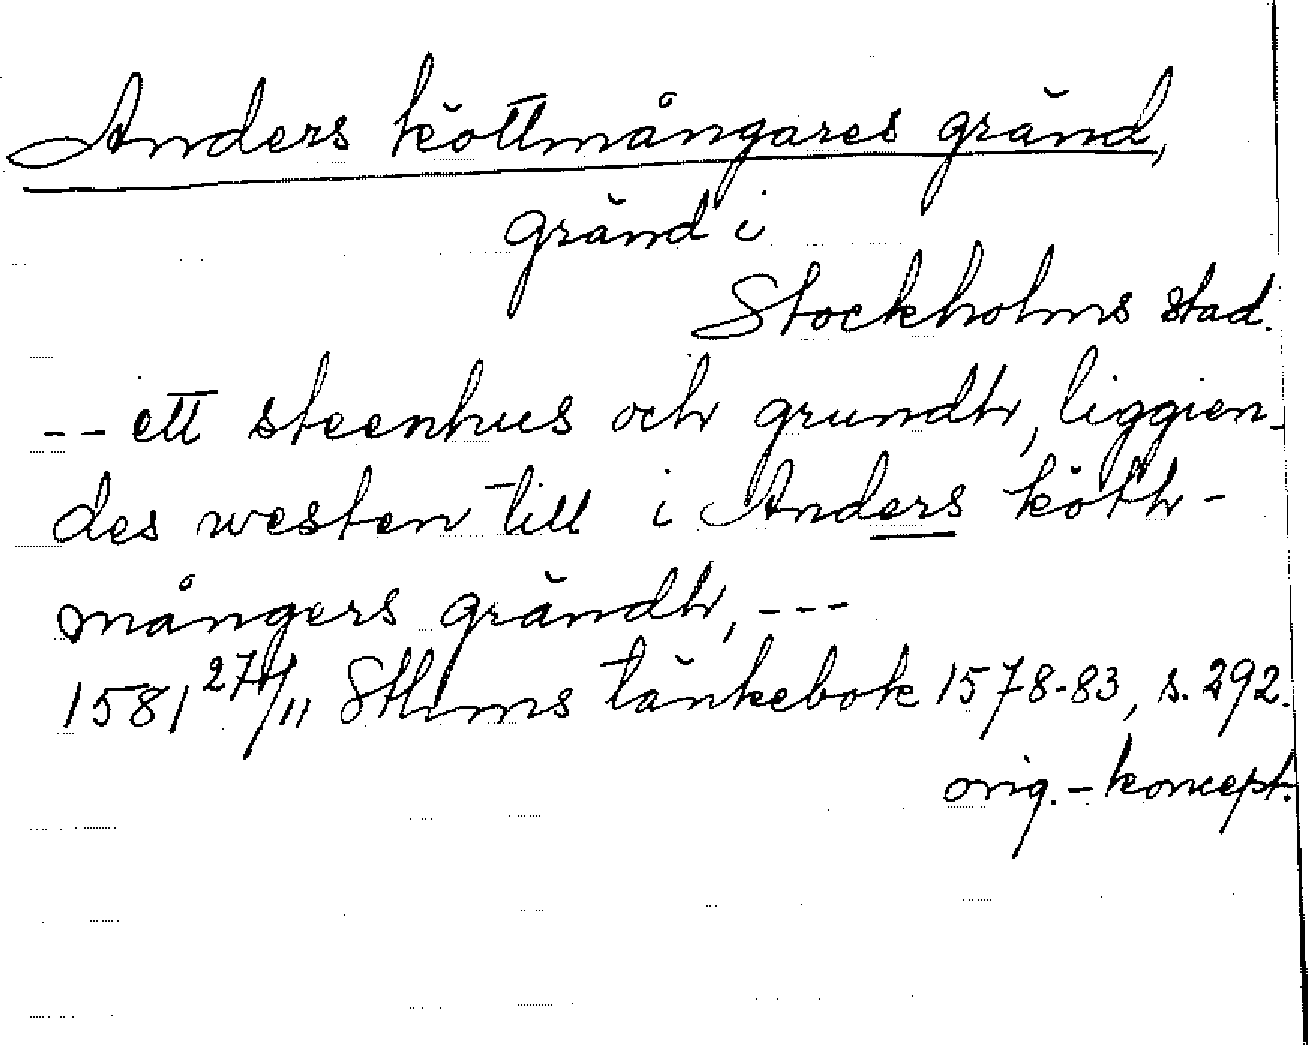 Anders köttmångares gränd,
gränd i
Stockholms stad.
-- ett steenhus och grundh, liggien-
des westen till i Anders köth-
mångers grändh, ---
1581 27/11 Sthms tänkebok 1578-83, s. 292.
orig.-koncept.